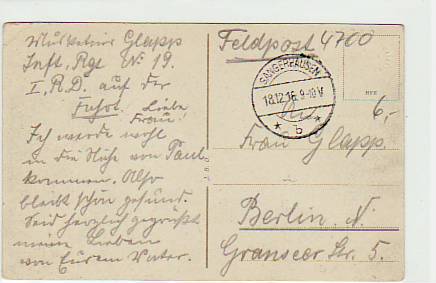 Musketier Glapp
Inft. Rgt. Nr 19.
I. R. D. auf der
Fahrt. Liebe
Frau!
Ich werde wohl
in die Nähe von Paul
kommen. Also
bleibt schön gesund.
Seid herzlich gegrüßt
meine Lieben
von Eurem Vater.
Feldpost 4700
SANGERHAUSEN
18.12.16. 9-10 V
* b *
An
6,-
Frau Glapp.
Berlin N.
Granseer Str. 5.